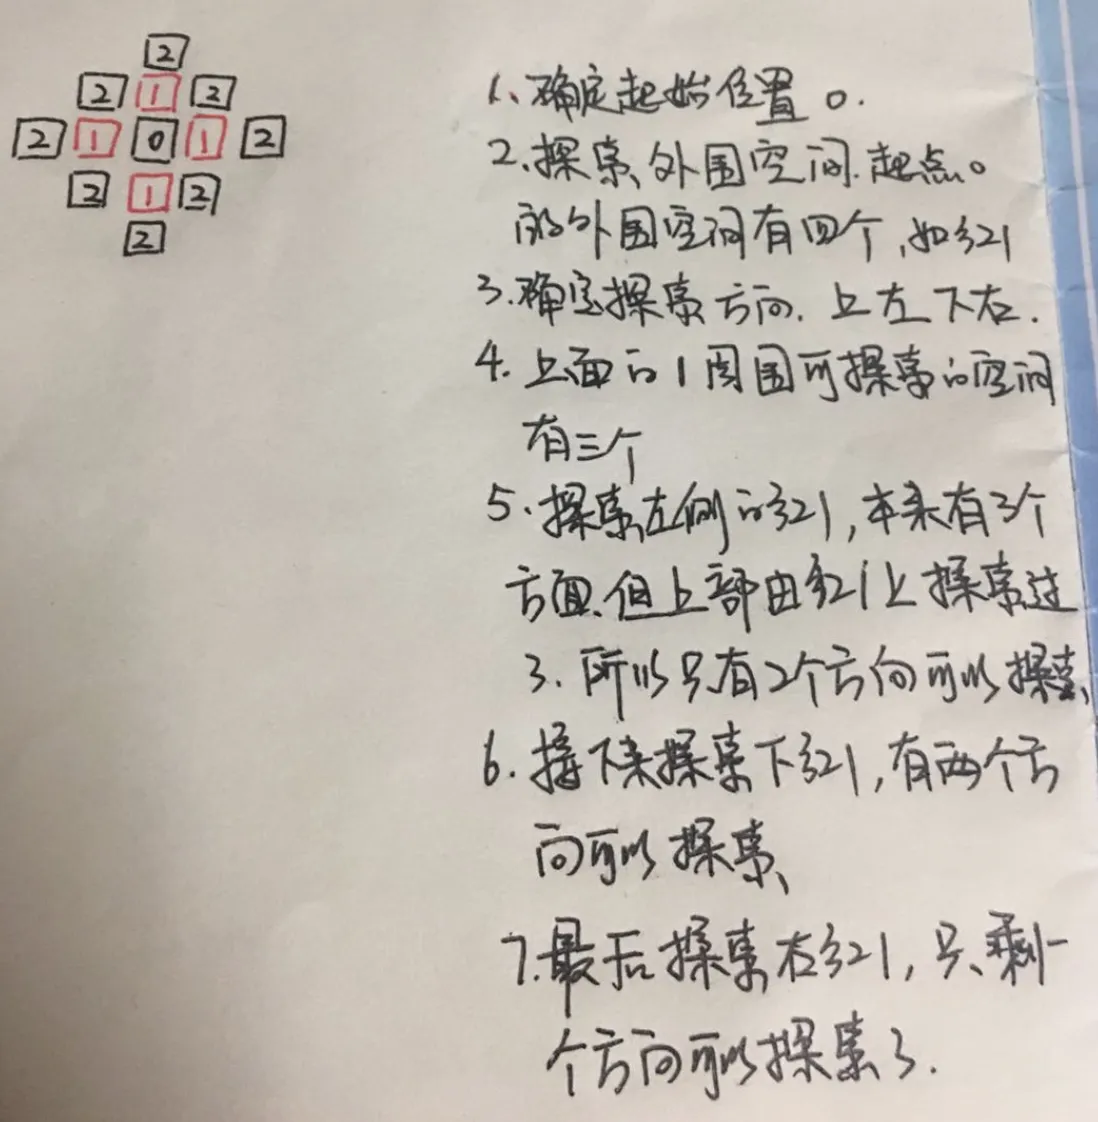 2
2 1 2
2 1 0 1 2
2 1 2
2
1、确定起始位置 0.
2.探索外围空间.起点0
的外围空间有四个,如红1
3.确定探索方向. 上左下右.
4.上面的1周围可探索的空间
有三个
5.探索左侧的红1,本来有3个
方面.但上部由红1上探索过
了.所以只有2个方向可以探索
6.接下来探索下红1,有两个方
向可以探索
7.最后探索右红1,只剩一
个方向可以探索了.